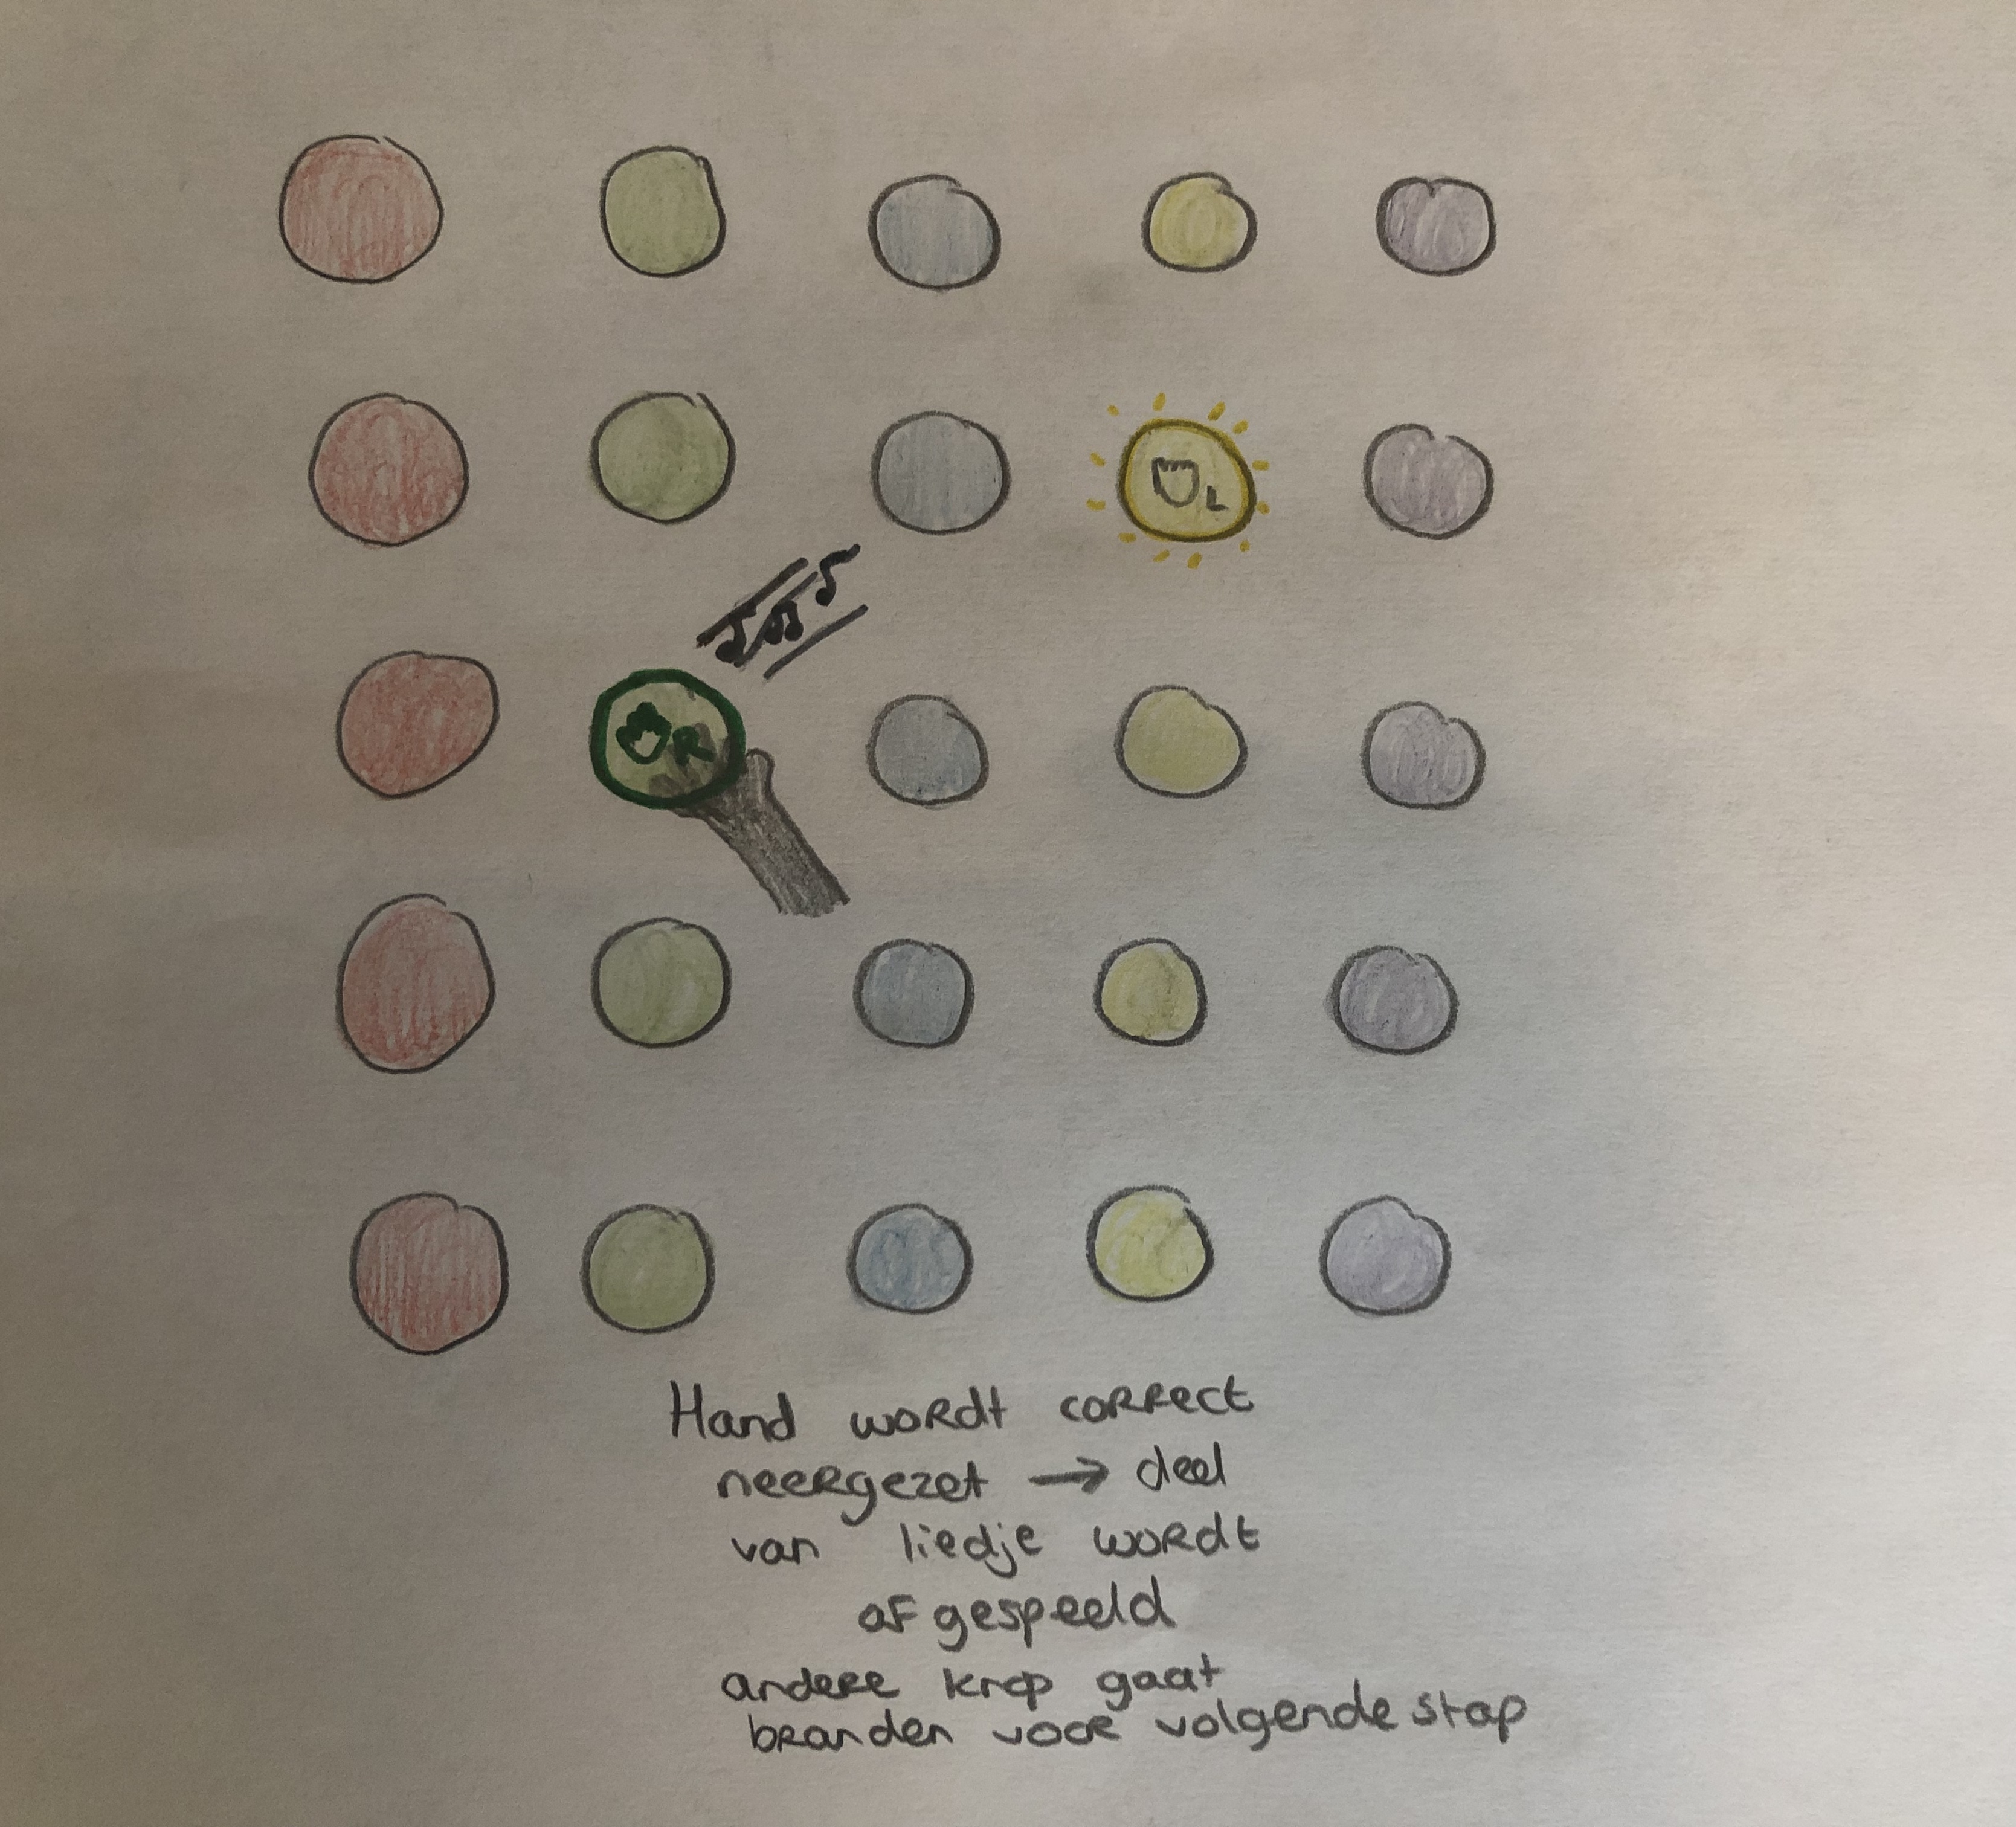 L
R
Hand wordt correct
neergezet → deel
van liedje wordt
afgespeeld
andere knop gaat
branden voor volgende stap